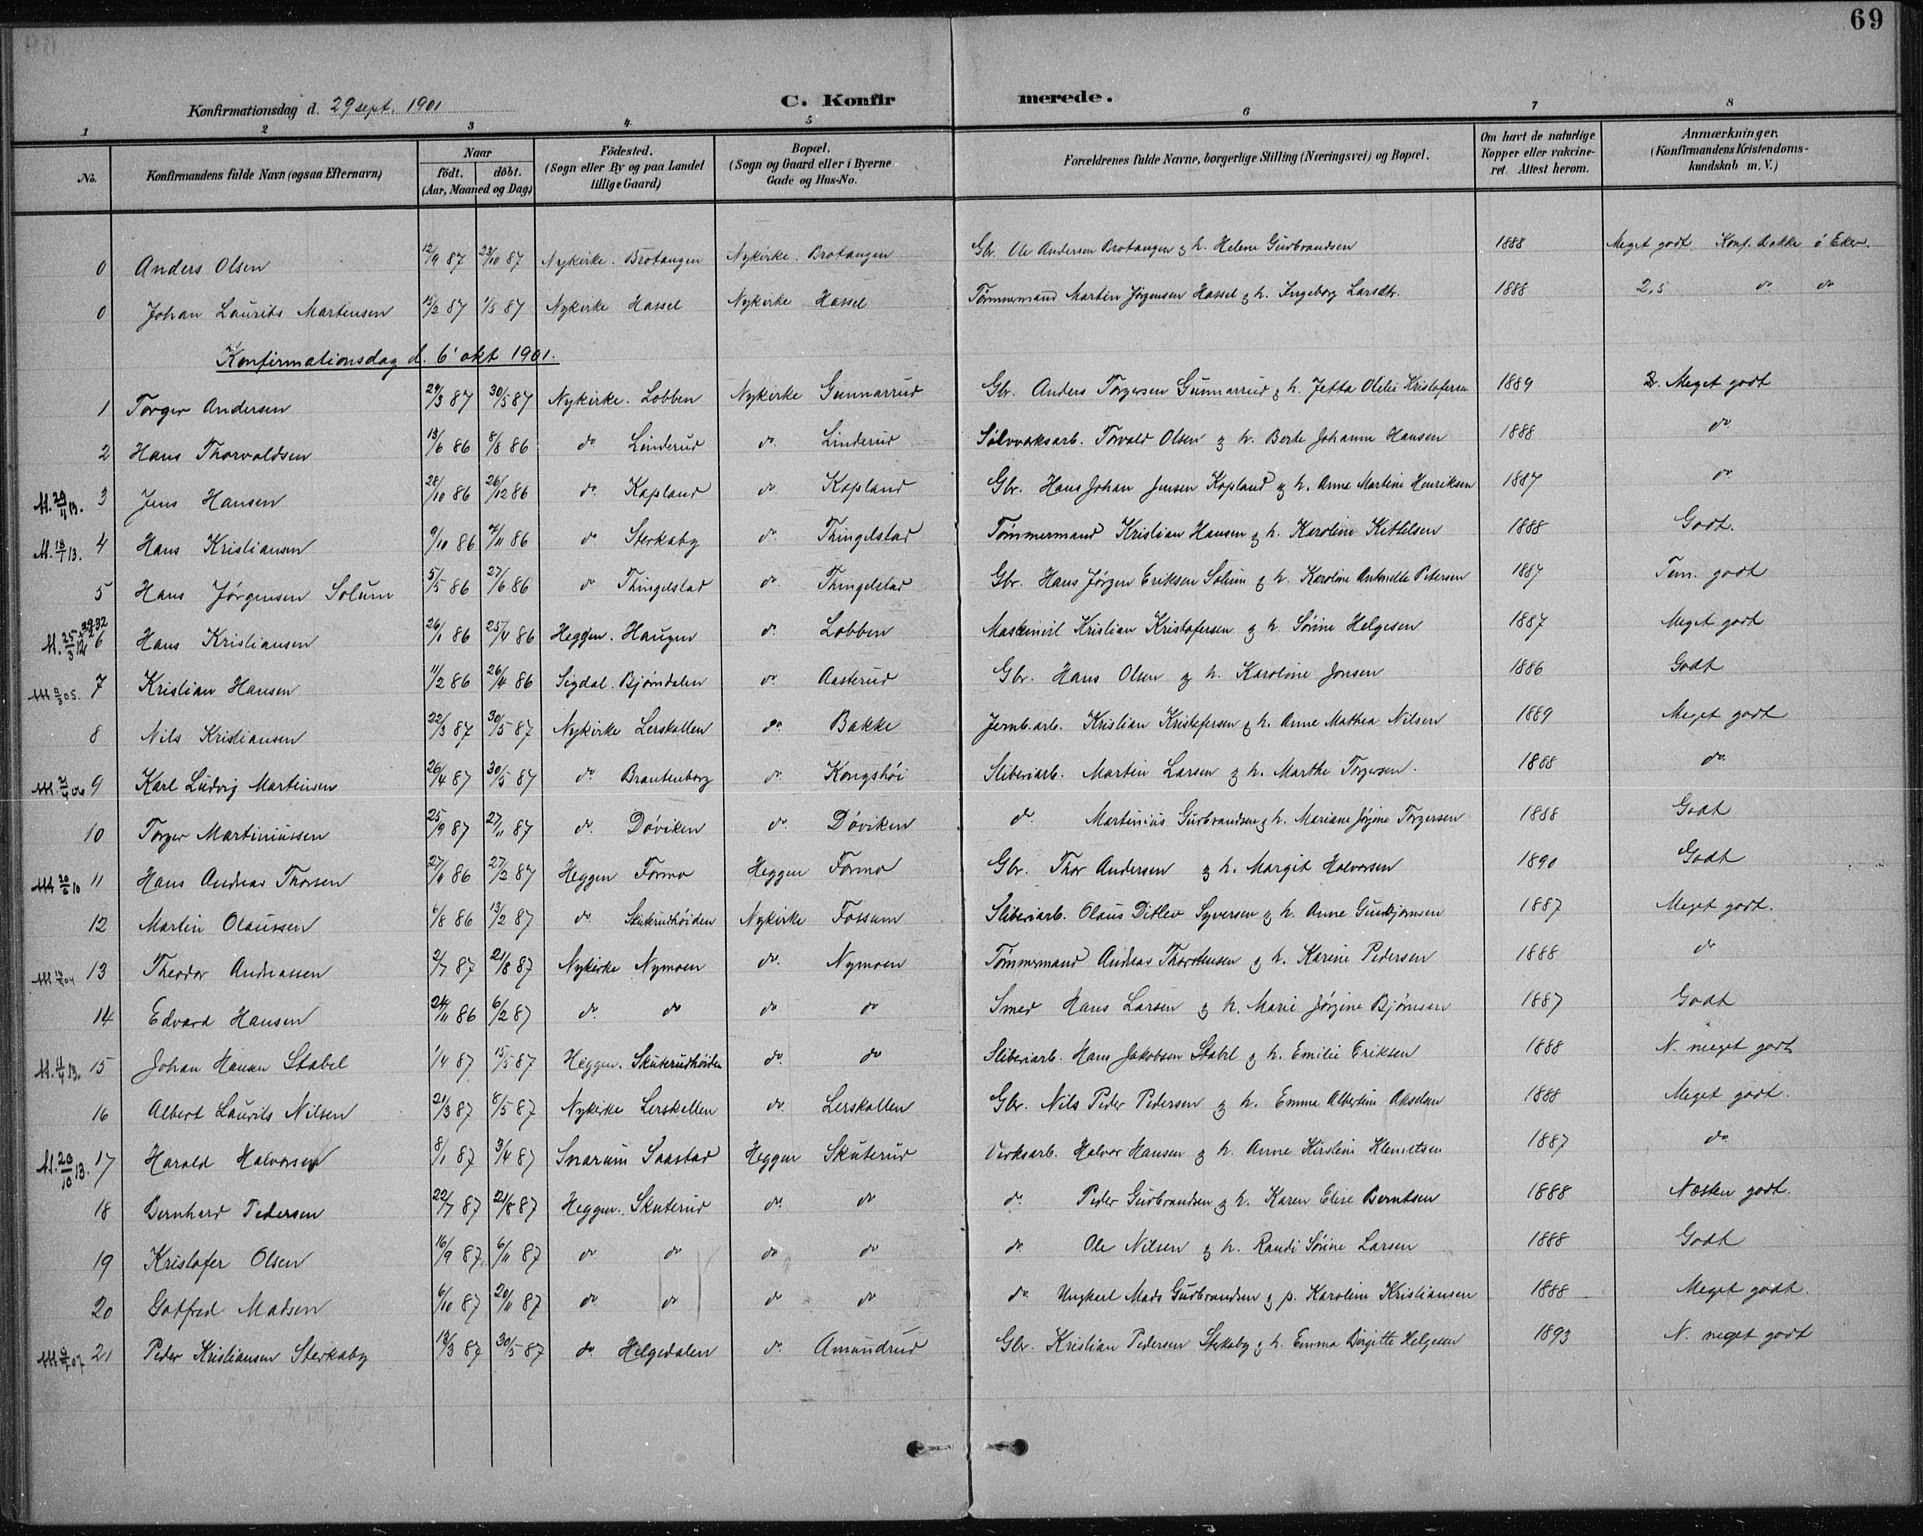 69
Konfirmationsdag d. 29 sept. 1901
C. Konfirmerede.
1 2 3 4 5 6 7 8
No. Konfirmandens fulde Navn (ogsaa Efternavn) Naar født. døbt. (Aar, Maaned og Dag) Fødested. (Sogn eller By og paa Landet tillige Gaard) Bopæl. (Sogn og Gaard eller i Byerne Gade og Hus-No. Forældrenes fulde Navne, borgerlige Stilling (Næringsvei) og Bopæl. Om havt de naturlige Kopper eller vakcineret. Attest herom. Anmærkninger. (Konfirmandens Kristendomskundskab m. V.)
0 Anders Olsen 12/9 87 23/10 87 Nykirke. Brotangen Nykirke. Brotangen Gbr. Ole Andersen Brotangen & h. Helene Gudbrandsen 1888 Meget godt. Konf. Bakke ö Eker.
0 Johan Laurits Martensen 15/2 87 1/5 87 Nykirke Hassel Nykirke Hassel Tømmermand Martin Jørgensen Hassel & h. Ingeborg Larsdtr. 1888 2,5 do do
Konfirmationsdag d. 6' okt 1901.
1 Torger Andersen 29/3 87 30/5 87 Nykirke. Lobben Nykirke Gunnarrud Gbr. Anders Torgersen Gunnarrud & h. Jetta Olelie Kristofersen 1889 2. Meget godt
2 Hans Thorvaldsen 13/6 86 8/8 86 do Linderud do. Linderud Sølvverksarb. Torvald Olsen & h. Berte Johanne Hansen 1888 do.
M. 29/11 13. 3 Jens Hansen 28/10 86 26/12 86 do. Kopland do. Kopland Gbr. Hans Johan Jensen Kopland & h. Anne Martine Henriksen 1887 do.
M. 18/1 13. 4 Hans Kristiansen 9/10 86 7/11 86 do Sterkaby do. Thingelstad Tømmermand Kristian Hansen & h. Karoline Kittelsen 1888 Godt.
5 Hans Jørgensen Solum 5/5 86 27/6 86 do Thingelstad do. Thingelstad Gbr. Hans Jørgen Eriksen Solum & h. Karoline Antonette Petersen 1887 Tem. godt
M. 25/3 12 6 Hans Kristiansen 26/1 86 25/4 86 Heggen. Haugen do. Lobben Maskinist Kristian Kristofersen & h. Sørine Helgesen 1887 Meget godt
05. 7 Kristian Hansen 11/2 86 26/4 86 Sigdal. Bjørndalen do. Aasterud Gbr. Hans Olsen & h. Karoline Jonsen 1886 Godt
8 Nils Kristiansen 22/3 87 30/5 87 Nykirke Lerskallen do. Bakke Jernb.arb. Kristian Kristofersen & h. Anne Mathea Nilsen 1889 Meget godt
06 9 Karl Ludvig Martinsen 26/4 87 30/5 87 do. Brantenborg do. Kongshöi Sliberiarb. Martin Larsen & h. Marthe Torgersen. 1888 do.
10 Torger Martiniussen 25/9 87 27/11 87 do. Døviken do. Døviken do. Martinius Gudbrandsen & h. Mariane Jørgine Torgersen 1888 Godt
20/6 10 11 Hans Andreas Thorsen 27/11 86 27/2 87 Heggen Formo Heggen Formo Gbr. Thor Andersen & h. Margit Halvorsen 1890 Godt
12 Martin Olaussen 6/8 86 13/2 87 do. Skuterudhöiden Nykirke Fossum Sliberiarb. Olaus Ditlev Syversen & h. Anne Gunbjørnsen 1887 Meget godt.
04 13 Theodor Andreassen 2/7 87 21/8 87 Nykirke Nymoen do. Nymoen Tømmermand Andreas Thorstensen & h. Karine Pedersen 1888 do
14 Edvard Hansen 24/11 86 6/2 87 do. do do do Smed Hans Larsen & h. Marie Jørgine Bjørnsen 1887 Godt
M. 4/4 13. 15 Johan Hansen Stabel 1/4 87 15/5 87 Heggen. Skuterudhöiden do. do Sliberiarb. Hans Jakobsen Stabel & h. Emilie Eriksen 1888 N. meget godt
16 Albert Laurits Nilsen 21/3 87 8/5 87 Nykirke Lerskallen do. Lerskallen Gbr. Nils Peder Pedersen & h. Emme Albertine Akselsen 1888 Meget godt.
M. 20/10 13. 17 Harald Halvorsen 8/1 87 3/4 87 Snarum Saastad Heggen Skuterud Verksarb. Halvor Hansen & h. Anne Kirstine Klemetsen 1887 do
18 Bernhard Pedersen 22/7 87 21/8 87 Heggen. Skuterud do. do do. Peder Gudbrandsen & h. Karen Elise Berntsen 1888 Næsten godt.
19 Kristofer Olsen 16/9 87 6/11 87 do do do do do. Ole Nilsen & h. Randi Sørine Larsen 1888 Godt
20 Gotfred Madsen 6/10 87 20/11 87 do do do do do. Ungkarl Mads Gudbrandsen & p. Karoline Kristiansen 1888 Meget godt.
07 21 Peder Kristiansen Sterkaby 13/3 87 30/5 87 do. Helgedalen do. Amundrud Gbr. Kristian Pedersen Sterkaby & h. Emma Birgitte Helgesen 1893 N. meget godt